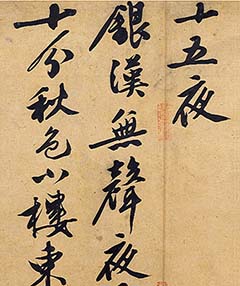 十五夜
銀漢無聲夜
十分秋色小樓東